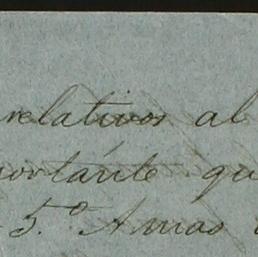 relativos al
portante qu
5.º Amas